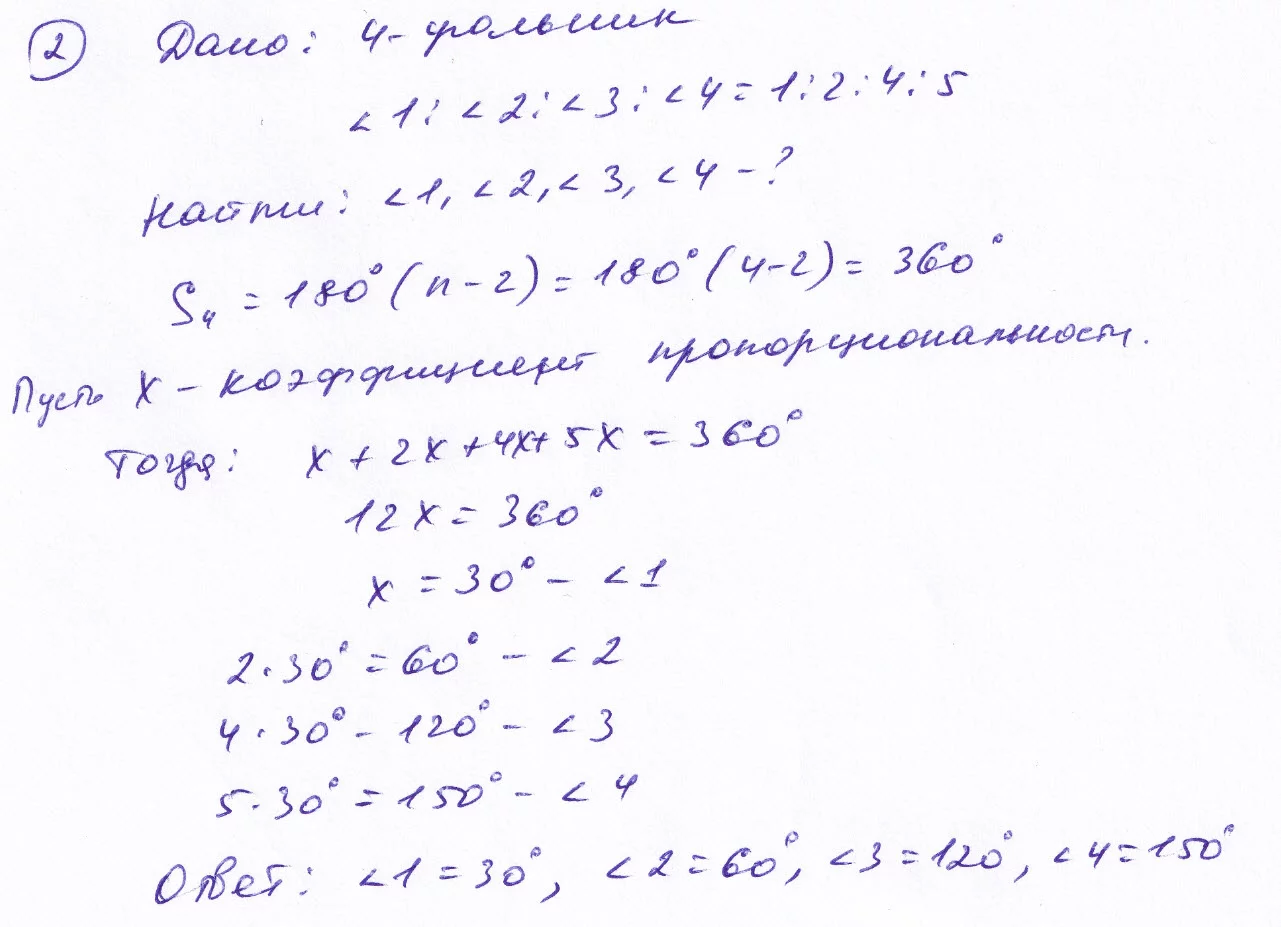 2 Дано: 4-угольник
<1:<2:<3:<4=1:2:4:5
Найти: <1,<2,<3,<4-?
S₄=180°(n-2)=180°(4-2)=360°
Пусть x-коэффициент пропорциональности.
Тогда: x+2x+4x+5x=360°
12x=360°
x=30°-<1
2·30°=60°-<2
4·30°-120°-<3
5·30°=150°-<4
Ответ: <1=30°, <2=60°, <3=120°, <4=150°